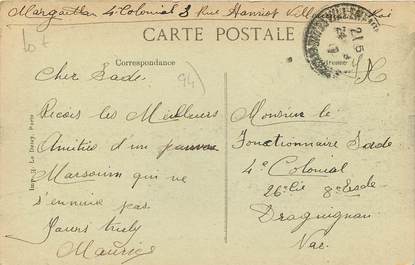 Margaillan 4e Colonial 3 Rue Hanriot
CARTE POSTALE
Correspondance
94)
Cher Sade
Reçois les Meilleurs
Amitiés d'un pauvre
Marsouin qui ne
s'ennuie pas
Yours truly
Maurice
Monsieur le
Fonctionnaire Sade
4e Colonial
26e Cie 8e Esade
Draguignan
Var.
Imp. J. Le Deley, Paris